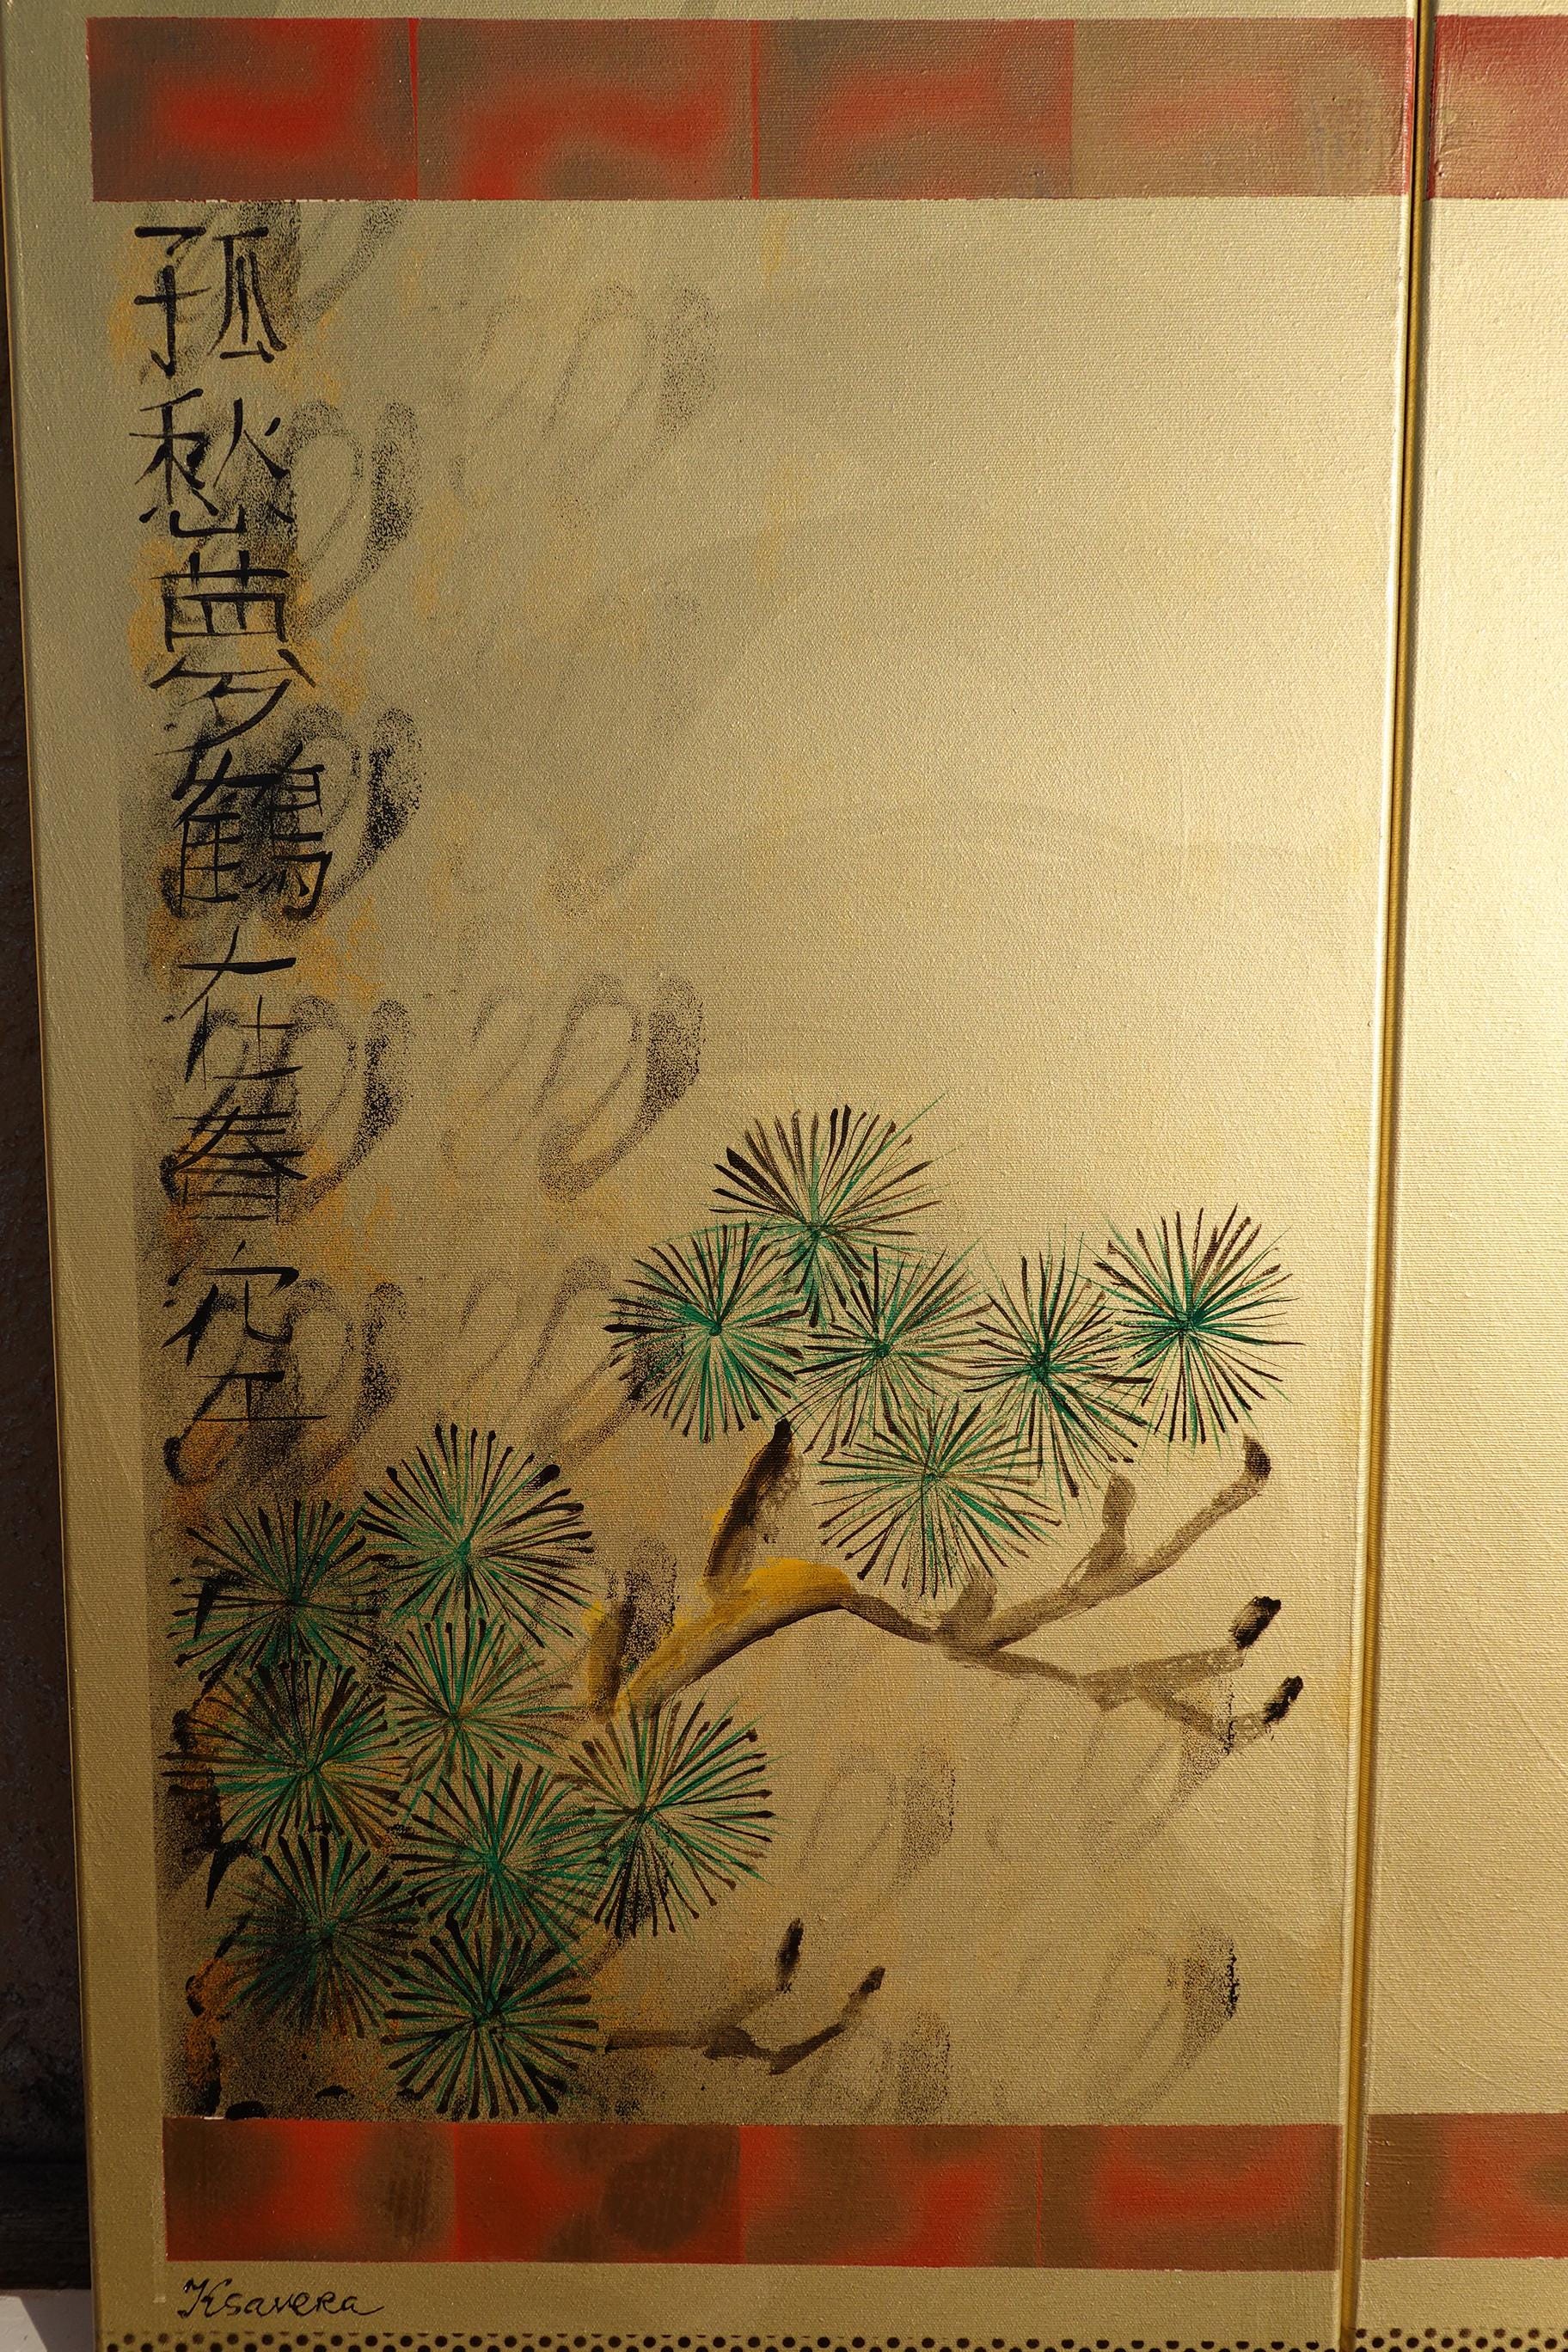 孤愁夢鶴在春空
Ksavera